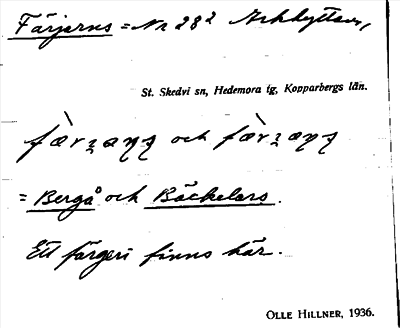 Färjarns = Nr 28² Arkhyttan,
St. Skedvi sn, Hedemora tg, Kopparbergs län.
och
= Bergå och Bäckelars.
Ett färgeri finns här.
OLLE HILLNER, 1936.